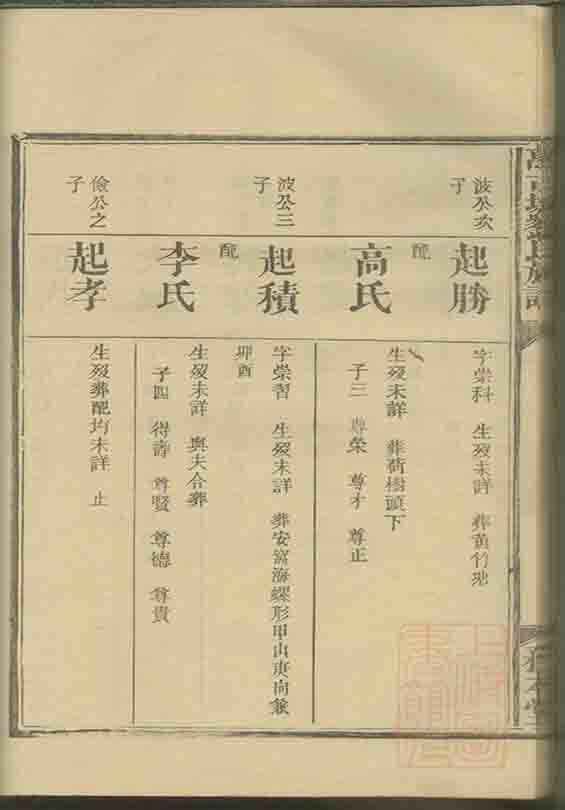 氏族
波公次
子
起勝
字崇科 生歿未詳 葬黃竹坳
配
高氏
生歿未詳 葬荷樹頭下
子三 尊榮 尊才 尊正
波公三
子
起積
字崇習 生歿未詳 葬安富海螺形甲山庚向兼
卯酉
配
李氏
生歿未詳 與夫合葬
子四 得壽 尊賢 尊德 尊貴
儉公之
子
起孝
生歿葬配均未詳 止
上海圖
書館藏